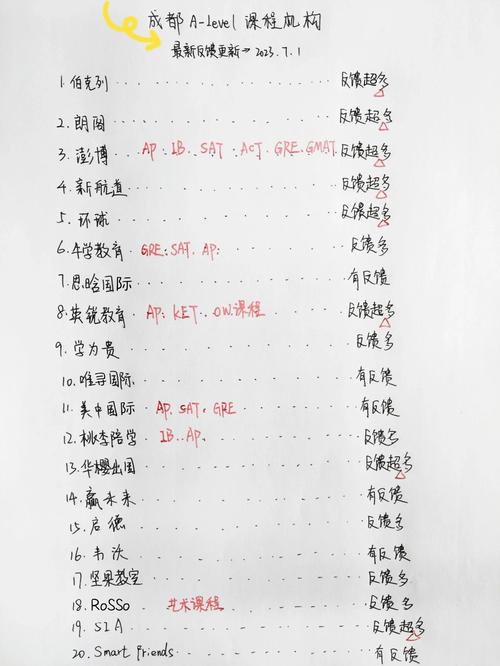 成都 A-level 课程机构
最新反馈更新→2023.7.1
1.伯克列 反馈超多
2.朗阁 反馈超多
3.澎博 AP. IB. SAT. ACT. GRE. GMAT. 反馈超多
4.新航道 反馈超多
5.环球 反馈超多
6.牛学教育 GRE. SAT. AP. 反馈多
7.思晗国际 有反馈
8.英锐教育 AP. KET. OW.课程 反馈超多
9.学为贵 反馈多
10.唯寻国际 有反馈
11.美中国际 AP. SAT. GRE 有反馈
12.桃李陪学 IB..AP. 反馈多
13.华樱出国 反馈超多
14.赢未来 有反馈
15.启德 反馈多
16.韦沃 有反馈
17.坚果教室 反馈多
18.RoSSo 艺术课程 反馈多
19.SIA 反馈超多
20.Smart friends 有反馈